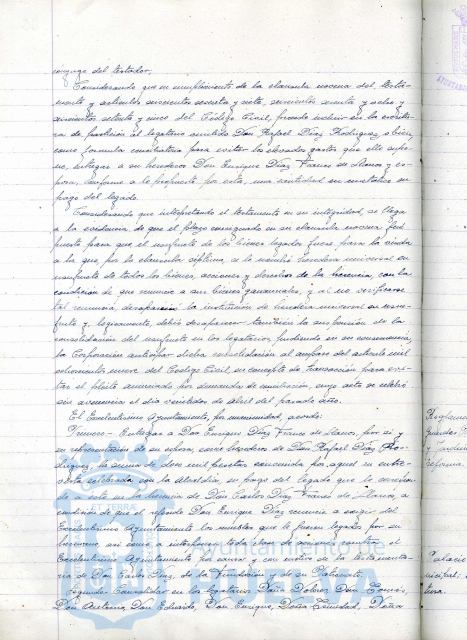 cónyuge del testador.
Considerando que en cumplimiento de la clausula novena del testa-
mento y artículos ochocientos sesenta y siete, ochocientos y
setenta y cinco del Código Civil, procede incluir en la escritu-
ra de partición al legatario omitido Don Rafael Díaz Rodríguez o bien,
como fórmula constructiva para evitar los elevados gastos que ello supo-
ne, entregar a su heredero Don Enrique Díaz Franés de Llanos y es-
posa, conforme a lo propuesto por esta, una cantidad en metálico en
pago del legado.
Considerando que interpretando el testamento en su integridad, se llega
a la evidencia de que el plazo consignado en su clausula novena fué
puesto para que el usufructo de los bienes legados fuese para la viuda
a la que, por la clausula séptima, se le nombró heredera universal en
usufructo de todos los bienes, acciones y derechos de la herencia, con la
condición de que renuncie a sus bienes gananciales, y al no verificarse
tal renuncia, desaparecía la institución de heredera universal en usu-
fructo y, logicamente, debió desaparecer también la suspensión de la
consolidación del usufructo en los legatarios, pudiendo en su consecuencia,
la Corporación anticipar dicha consolidación al amparo del artículo mil
ochocientos nueve del Código Civil, en concepto de transacción para evi-
tar el pleito anunciado por demanda de conciliación, cuyo acto se celebró
sin avenencia el día veintidos de abril del pasado año.
El Excelentísimo Ayuntamiento, por unanimidad, acordó:
Primero.- Entregar a Don Enrique Díaz Franés de Llanos, por sí y
en representación de su señora, como herederos de Don Rafael Díaz Ro-
dríguez, la suma de doce mil pesetas convenida por aquel en entre-
vista celebrada con la Alcaldía, en pago del legado que le corresponde
a este en la herencia de Don Carlos Díaz Franés de Llanos, a
condición de que el referido Don Enrique Díaz renuncie a exigir del
Excelentísimo Ayuntamiento los muebles que le fueron legados por su
hermano, así como a interponer toda clase de acciones contra el
Excelentísimo Ayuntamiento por causa y con motivo de la testamenta-
ría de Don Carlos Díaz, de la Fundación y de su Patronato.
Segundo.- Consolidar en los legatarios Doña Dolores, Don Tomás,
Don Antonio, Don Eduardo, Don Enrique, Doña Trinidad, Doña
Reglamen
Guardas
y Jardin
reforma.
Palacio
nicipal: